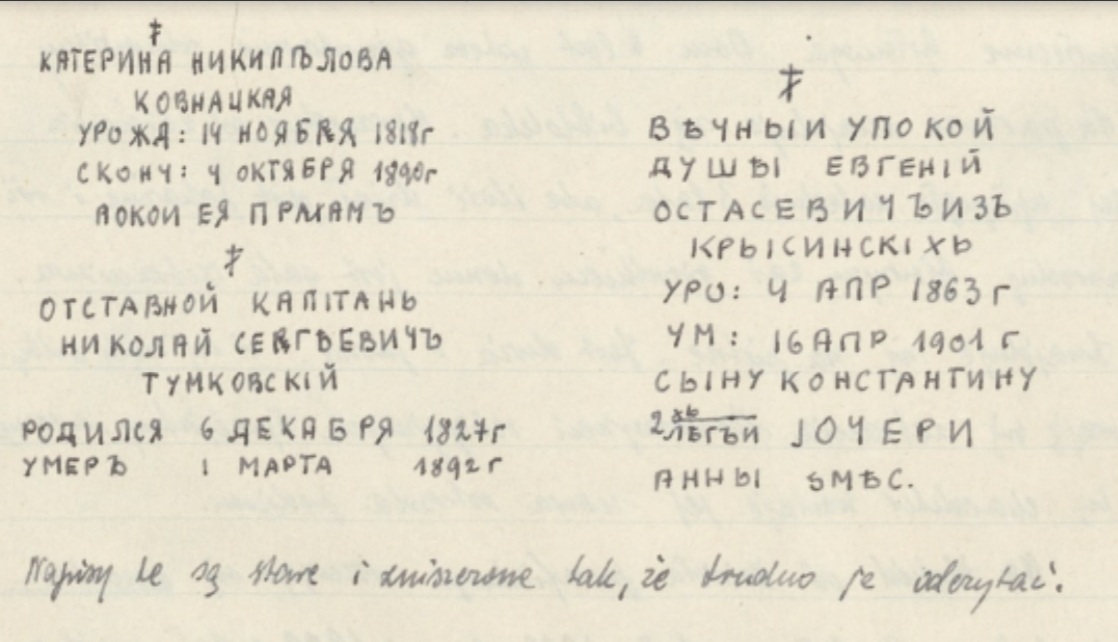 КАТЕРИНА НИКИПЪЛОВА
КОВНАЦКАЯ
УРОЖД: 14 НОЯБРЯ 1818г
СКОНЧ: 4 ОКТЯБРЯ 1890г
ПОКОИ ЕЯ
ОТСТАВНОЙ КАПІТАНЬ
НИКОЛАЙ СЕРГѢЕВИЧЪ
ТУМКОВСКІЙ
РОДИЛСЯ 6 ДЕКАБРЯ 1827г
УМЕРЪ 1 МАРТА 1892г
ВѢЧНЫИ УПОКОЙ
ДУШЫ ЕВГЕНІЙ
ОСТАСЕВИЧЪ ИЗЪ
КРЫСИНСКІХЬ
УРО: 4 АПР 1863 г
УМ: 16 АПР 1901 г
СЫНУ КОНСТАНТИНУ
2хь ЛѢГЪЙ ДОЧЕРИ
АННЫ 5МѢС.
Napisy te są stare i zniszczone tak, że trudno je odczytać.